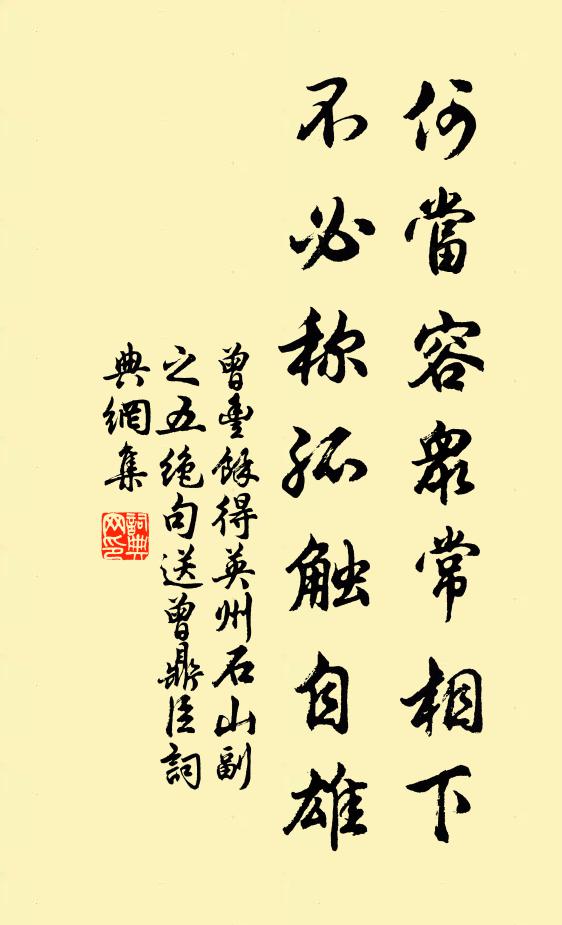 何當容眾常相下
不必称孤触自雄
曾豊餘得英州石山副
之五绝句送曾鼎臣詞
典網集
詞典
网印